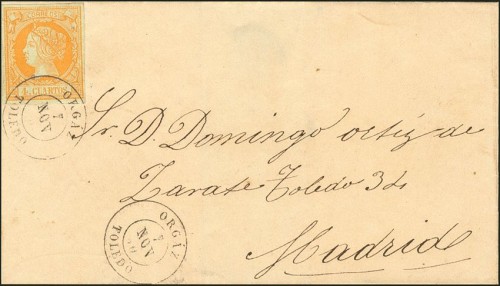 CORREOS
4 CUARTOS
ORGAZ
7
NOV
TOLEDO
Sr. D. Domingo ortiz de
Zarate Toledo 34
Madrid
ORGAZ
7
NOV
60
TOLEDO